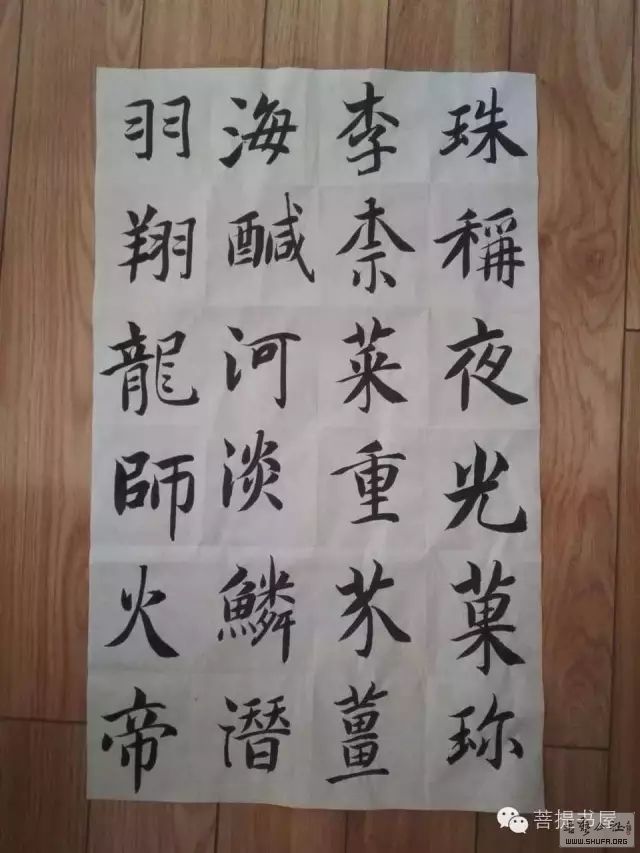 珠稱夜光菓珍
李柰菜重芥薑
海醎河淡鱗潛
羽翔龍師火帝
菩提书屋
WWW.SHUFA.ORG